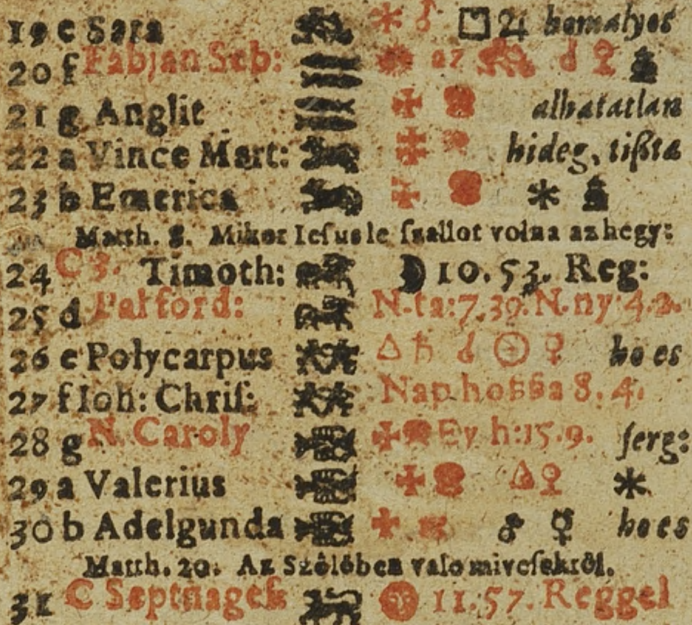 19 e Sara ✶ ♂ □ ♃ homalyos
20 f Fabjan Seb: az ☌ ♀
21 g Anglit alhatatlan
22 a Vince Mart: hideg, tißta
23 b Emerica ✶
Matth. 8. Mikor Iesus le szallot volna az hegy:
24 C 3. Timoth: ☽ 10.53. Reg:
25 d Pal ford: N.ta:7.39. N.ny:4.2.
26 e Polycarpus △ ♄ ☌ ☉ ♀ ho es
27 f Ioh: Chriſ: Nap hoßßa 8. 4.
28 g N. Caroly Ey h:15.9. ferg:
29 a Valerius △ ♀ ✶
30 b Adelgunda ♂ ☿ ho es
Matth. 20. Az Szôlôben valo mivesekrôl.
31 C Septuageſ: 11.57. Reggel